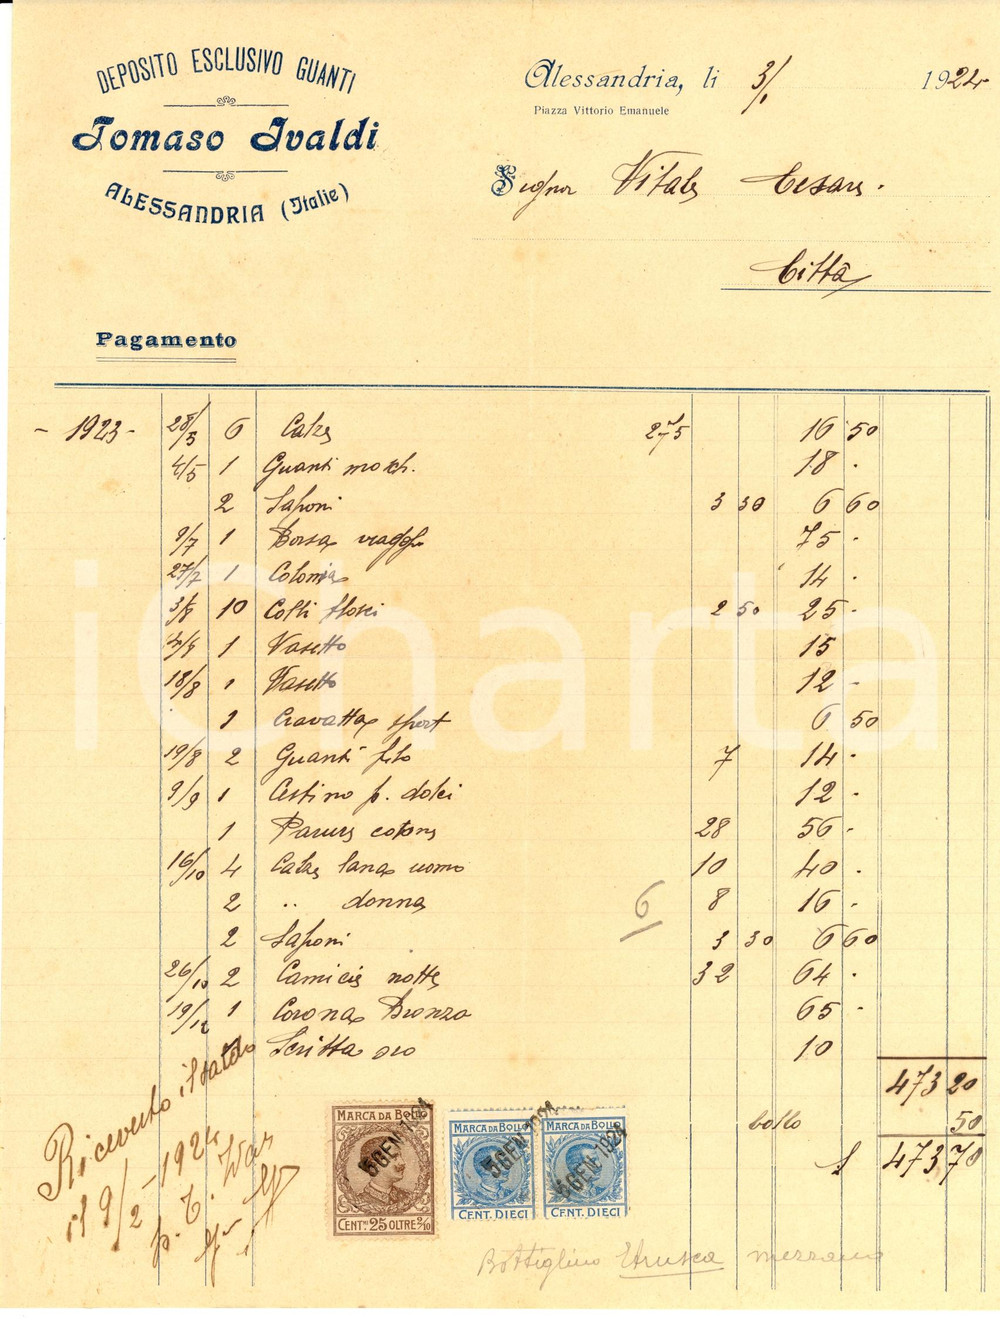 DEPOSITO ESCLUSIVO GUANTI
Tomaso Ivaldi
ALESSANDRIA (Italie)
Alessandria, li 3/1 1924
Piazza Vittorio Emanuele
Signor Vitale Cesare.
Città
Pagamento
- 1923 - 28/3 6 Calze 275 16 50
4/5 1 Guanti moch. 18 .
2 Saponi 3 30 6 60
9/7 1 Borsa viaggio 75 .
27/7 1 Colonia 14 .
3/8 10 Colli flosci 2 50 25 .
1 Vasetto 15
18/8 1 Vasetto 12 -
1 Cravatta sport 6 50
19/8 2 Guanti filo 7 14 -
9/9 1 Cestino p. dolci 12 -
1 Parure cotone 28 56 -
16/10 4 Calze lana uomo 10 40 .
2 " donna 8 16 -
6
2 Saponi 3 30 6 60
26/10 2 Camicie notte 32 64 .
19/12 1 Corona Bronzo 65 -
Scritta oro 10
473 20
bollo 50
£ 473 70
Ricevuto il saldo
il 9/2 - 1924
p. T.
MARCA DA BOLLO
5 GEN 1924
CENT.MI 25 OLTRE 2/10
MARCA DA BOLLO
5 GEN 1924
CENT. DIECI
MARCA DA BOLLO
5 GEN 1924
CENT. DIECI
Bottiglino Etrusca mezzano
iCharta